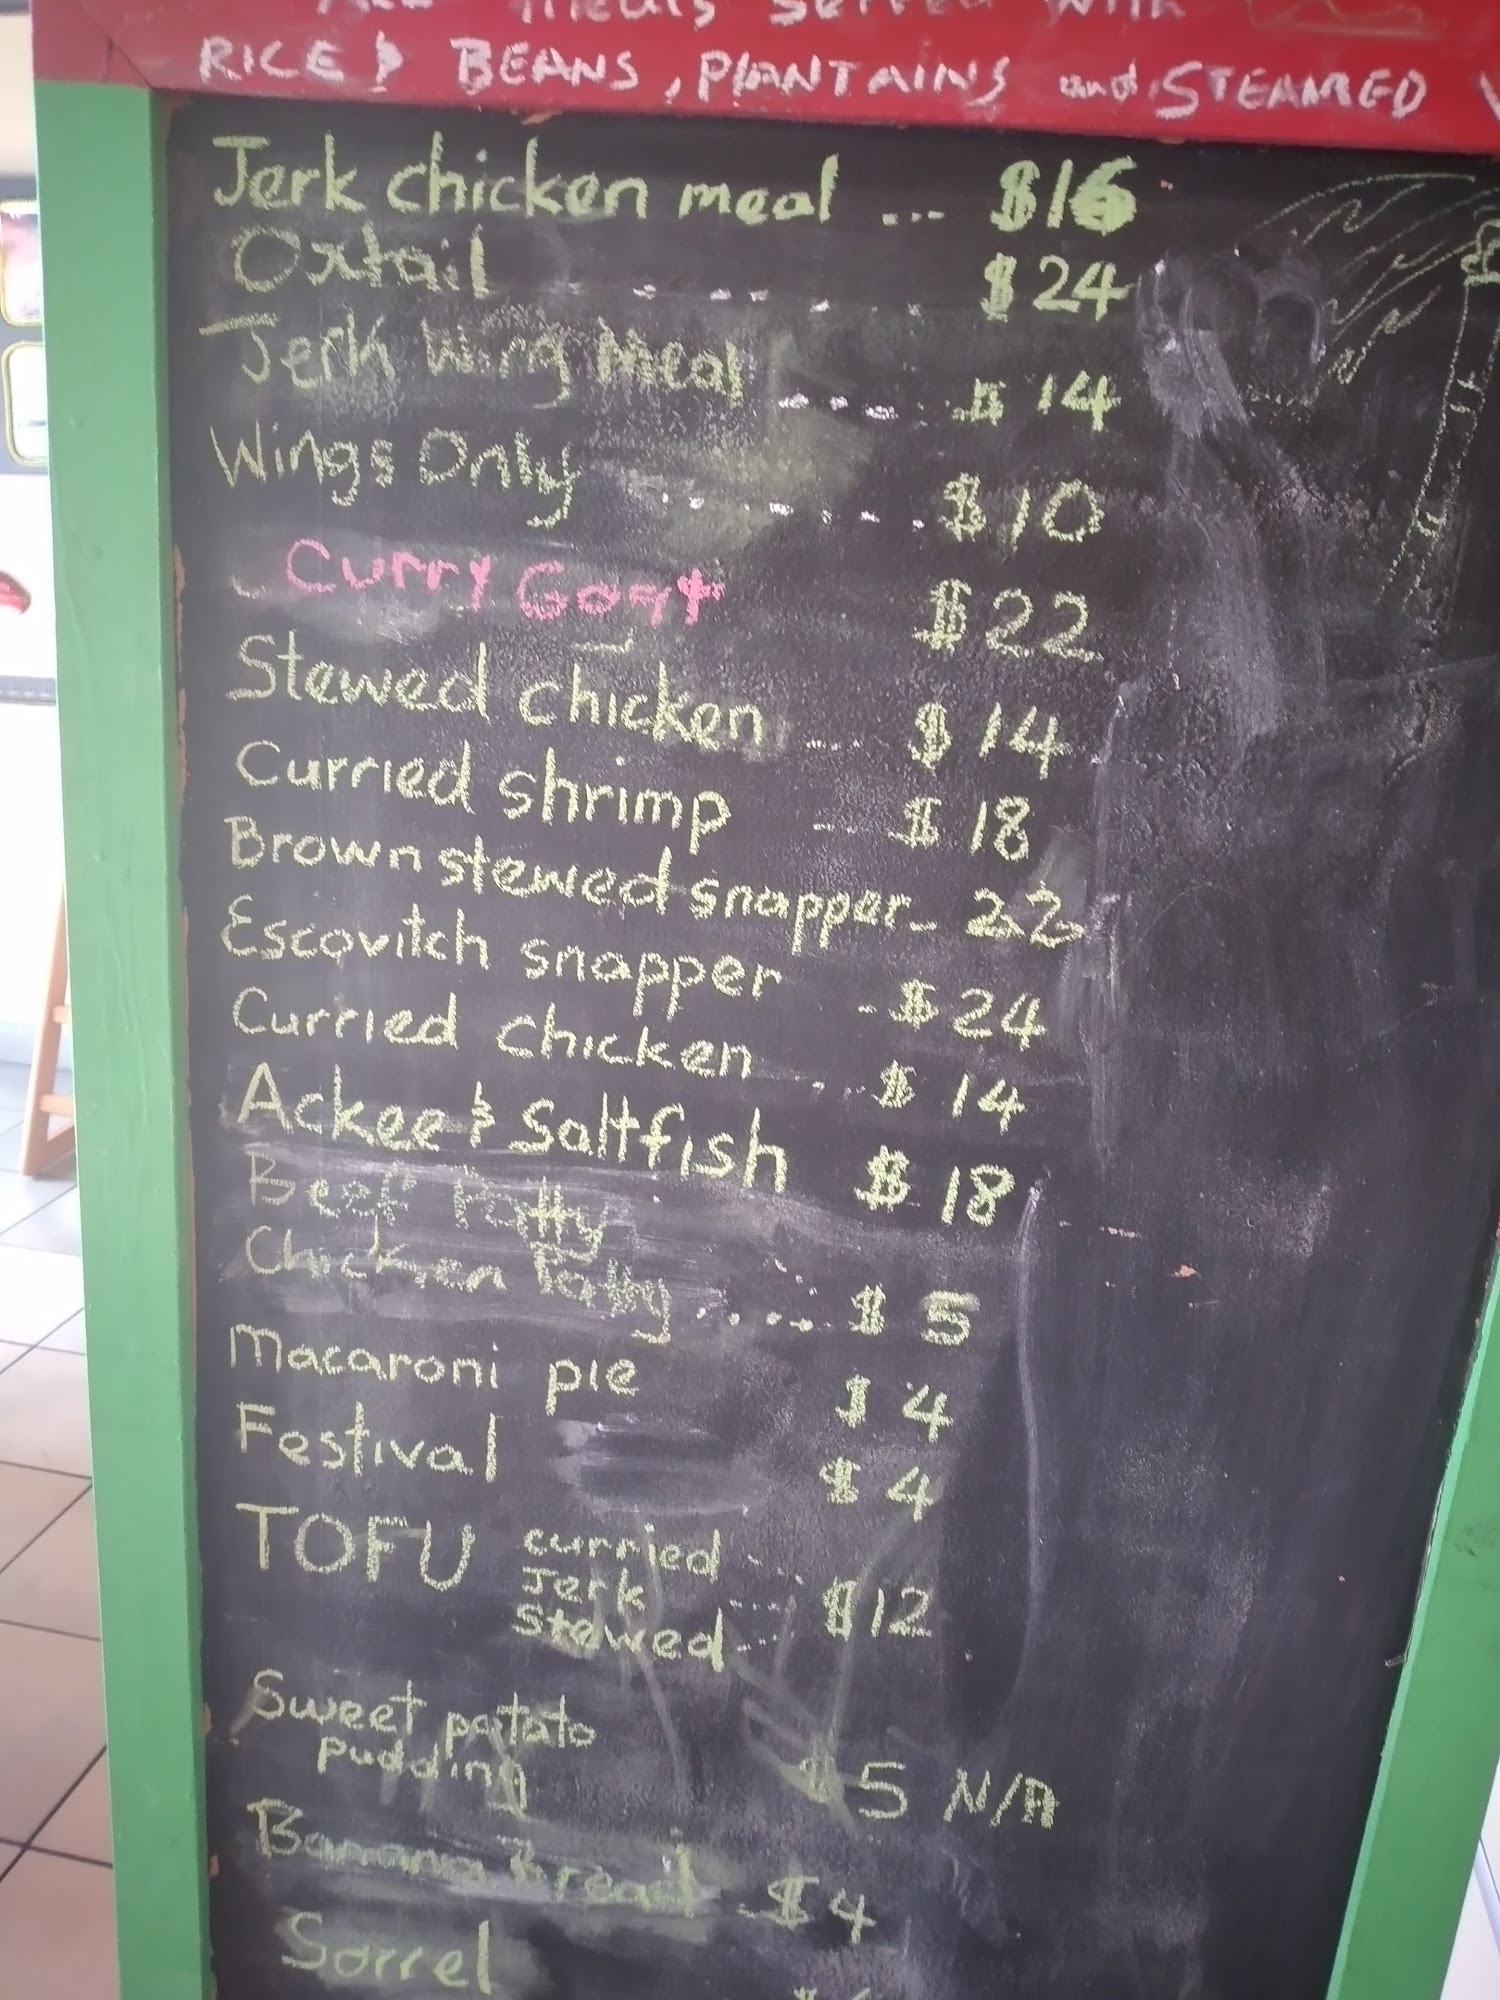 All meals served with
RICE & BEANS, PLANTAINS and STEAMED
Jerk chicken meal ... $16
Oxtail ...... $24
Jerk Wing Meal ..... $14
Wings Only ...... $10
Curry Goat $22
Stewed chicken ... $14
Curried shrimp ... $18
Brown stewed snapper.. 22
Escovitch snapper .. $24
Curried chicken ... $14
Ackee & Saltfish $18
Beef Patty
Chicken Patty ..... $5
Macaroni pie $4
Festival $4
TOFU curried ..
Jerk ... $12
Stewed...
Sweet potato
pudding $5 N/A
Banana Bread $4
Sorrel